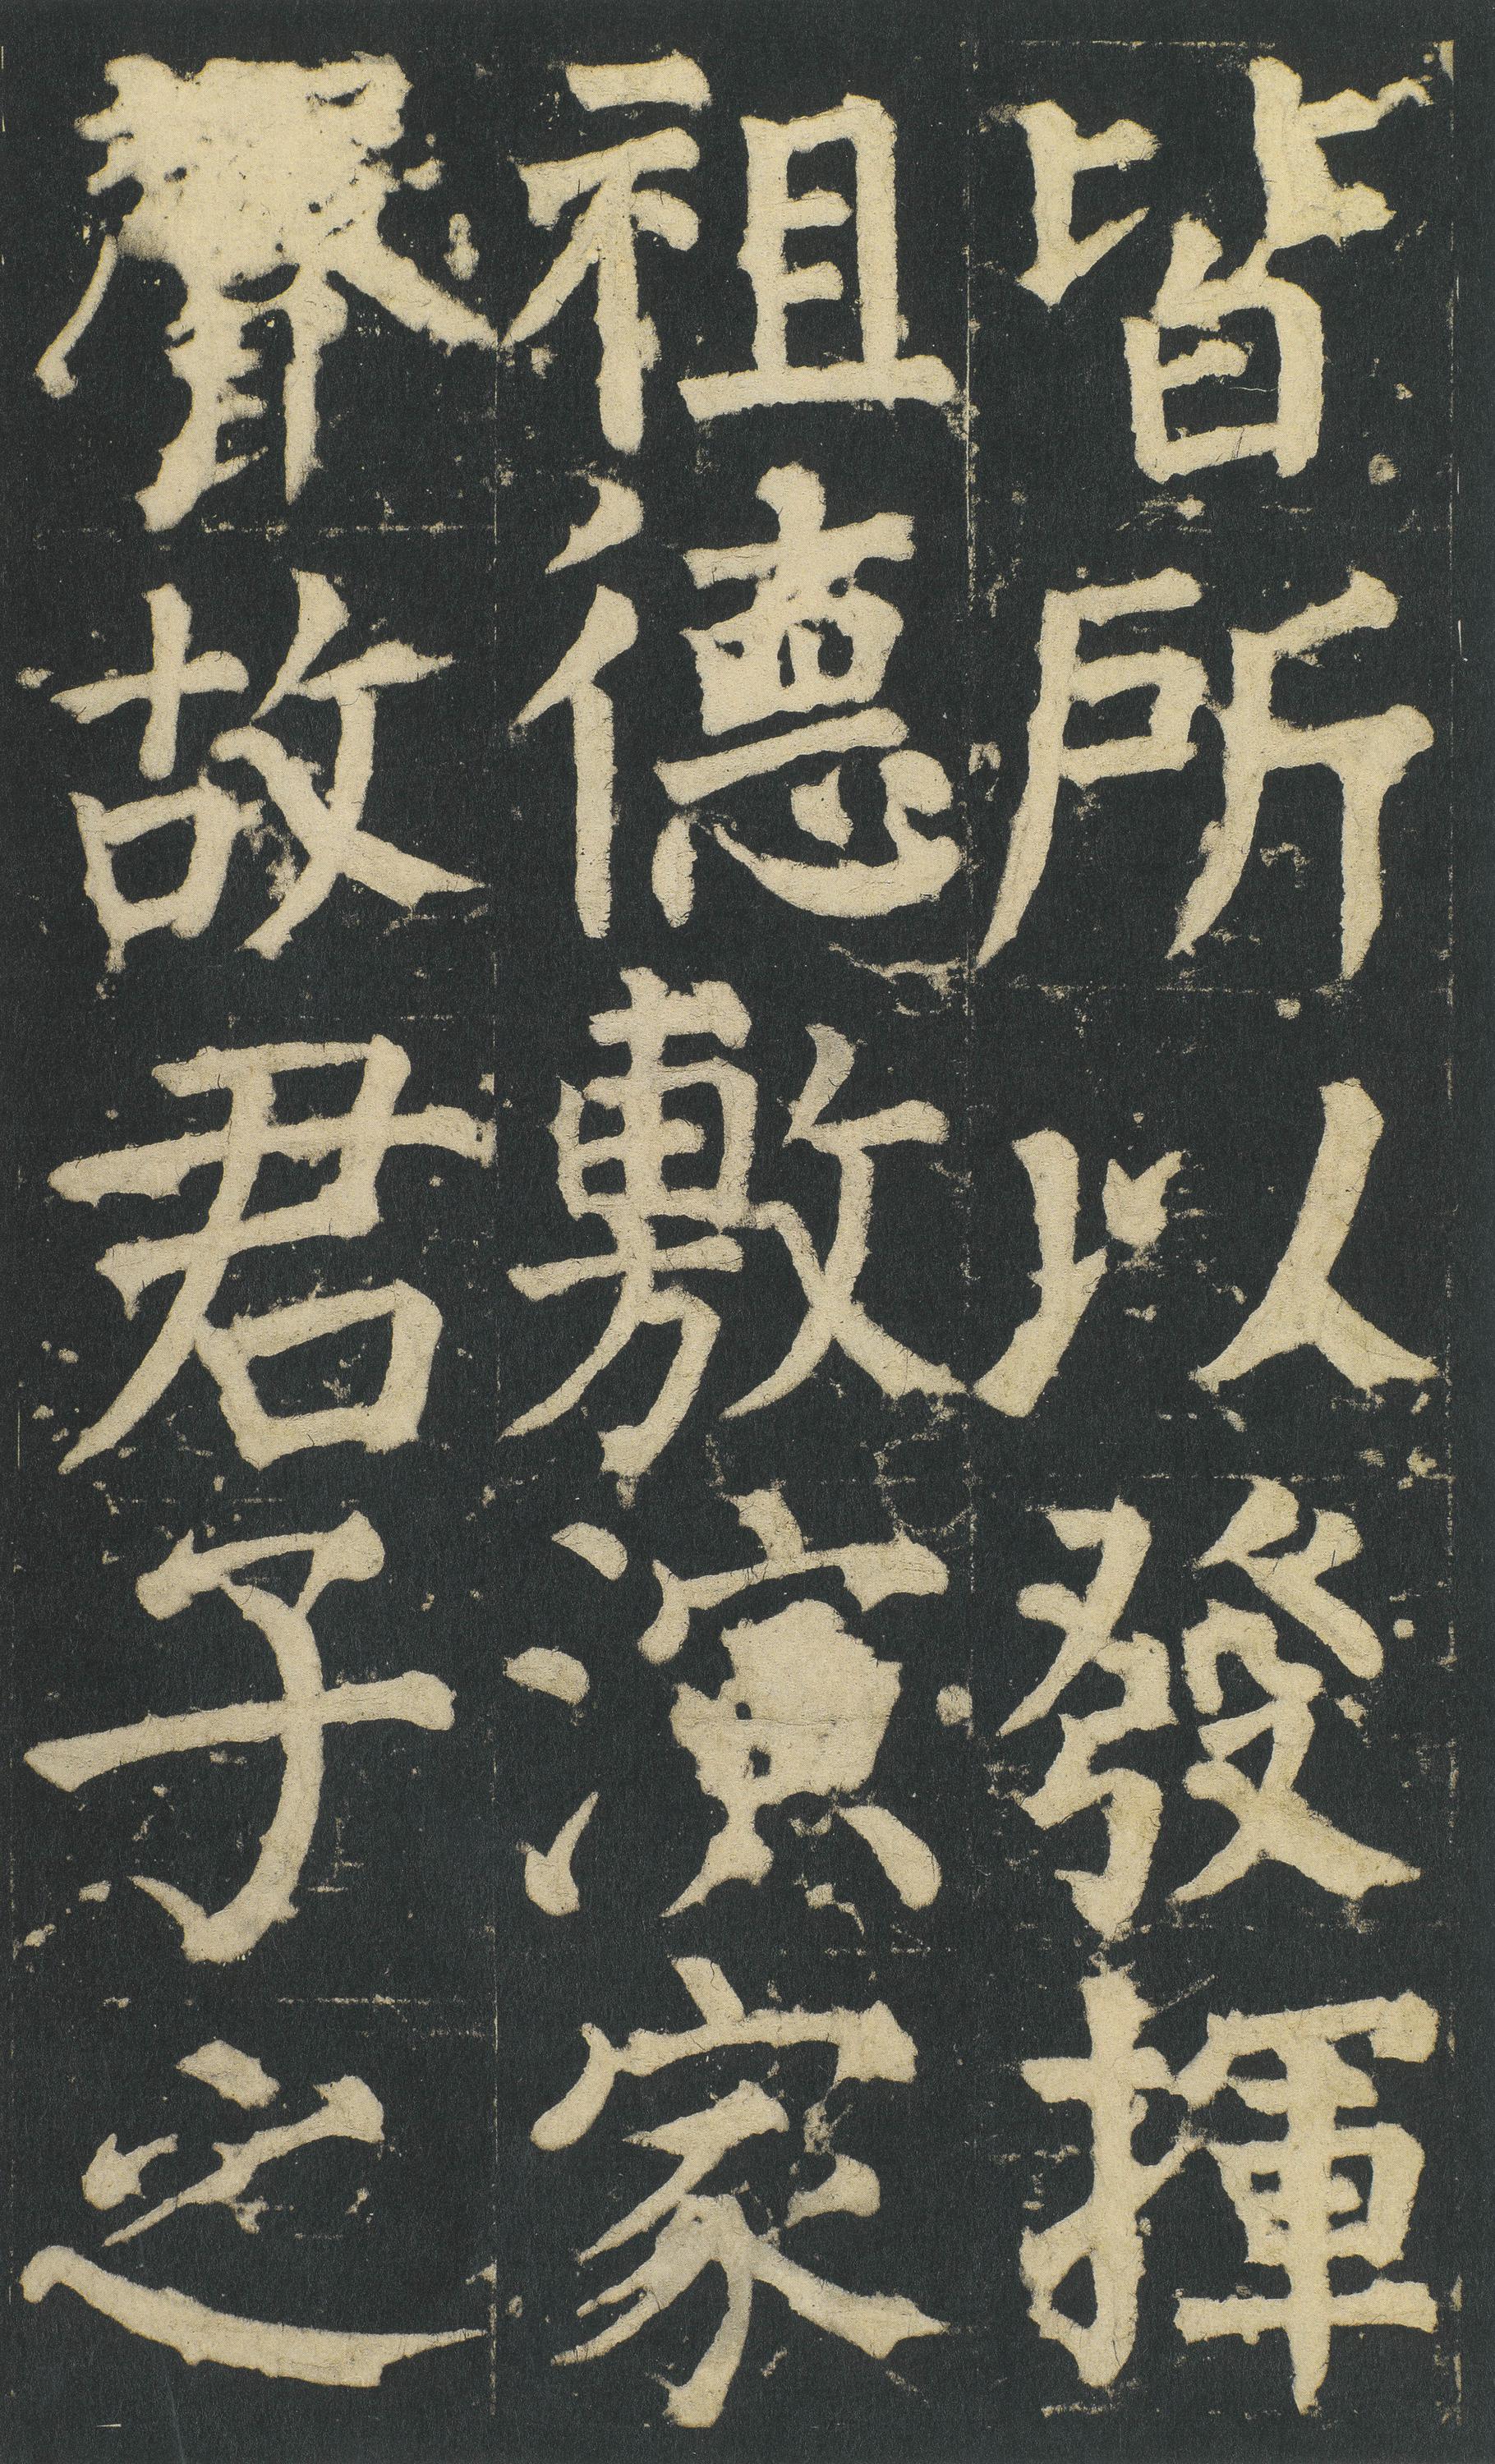 皆所以發揮
祖德敷演家
聲故君子之